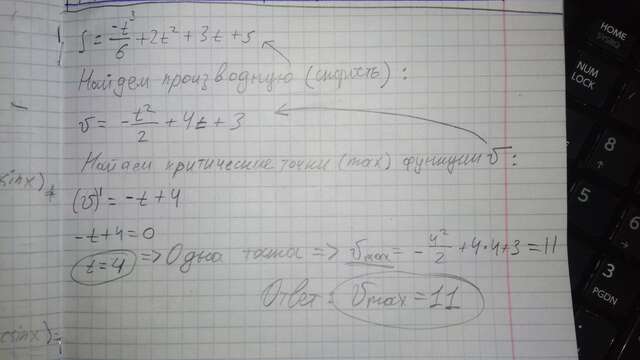 S = -t³/6 + 2t² + 3t + 5
Найдем производную (скорость):
v = -t²/2 + 4t + 3
Найдем критические точки (max) функции v:
(v)' = -t + 4
-t + 4 = 0
t = 4 => Одна точка => vmax = -4²/2 + 4·4 + 3 = 11
Ответ: vmax = 11
sinx)
sinx) =
HOME
NUM
LOCK
8
5
3
PGDN